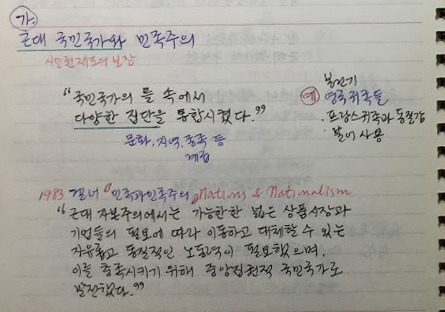 가.
근대 국민국가와 민족주의
시민권제도의 보장
"국민국가의 틀 속에서
다양한 집단을 통합시켰다."
문화, 지역, 종족 등
계급
봉건기
예 영국귀족들
· 프랑스귀족과 동질감
· 불어 사용
1983 겔너 『민족과 민족주의』 Nations & Nationalism
"근대 자본주의에서는 가능한한 넓은 상품시장과
기업들의 필요에 따라 이동하고 대체할 수 있는
자유롭고 동질적인 노동력이 필요했으며,
이를 충족시키기 위해 중앙집권적 국민국가로
발전했다."